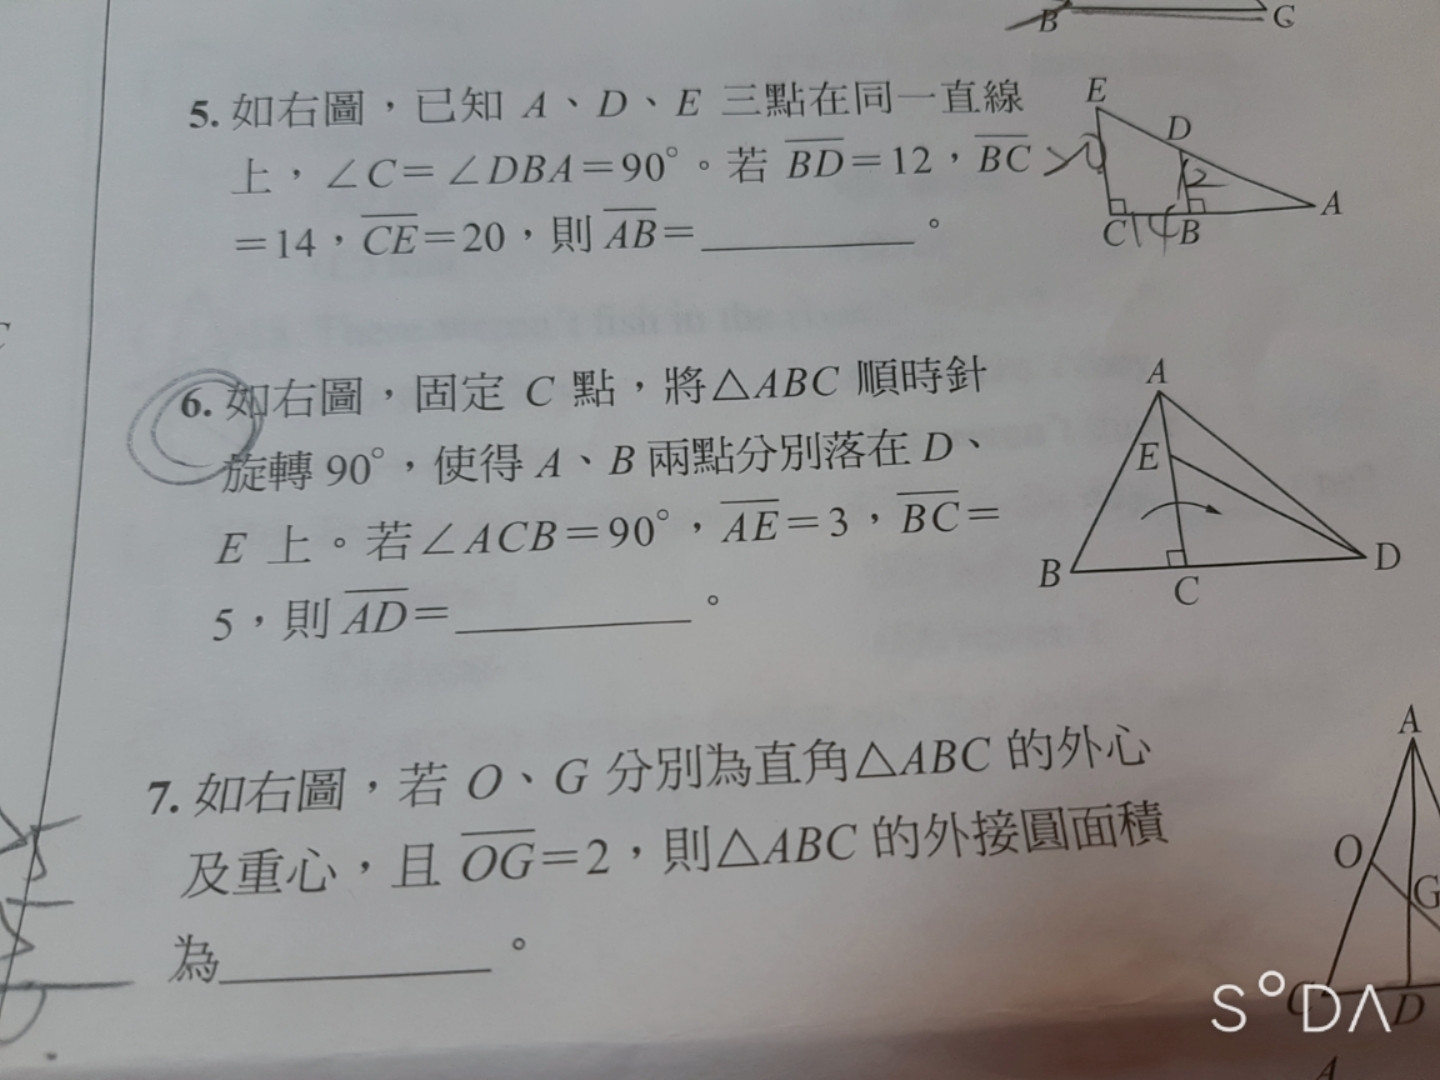 B C
5. 如右圖，已知 A、D、E 三點在同一直線
上，∠C=∠DBA=90°。若 BD=12，BC
=14，CE=20，則 AB=＿＿＿＿。
E
D
A
C 14 B
12
6. 如右圖，固定 C 點，將△ABC 順時針
旋轉 90°，使得 A、B 兩點分別落在 D、
E 上。若∠ACB=90°，AE=3，BC=
5，則 AD=＿＿＿＿。
A
E
B C D
7. 如右圖，若 O、G 分別為直角△ABC 的外心
及重心，且 OG=2，則△ABC 的外接圓面積
為＿＿＿＿。
A
O
G
C D
SODA
A